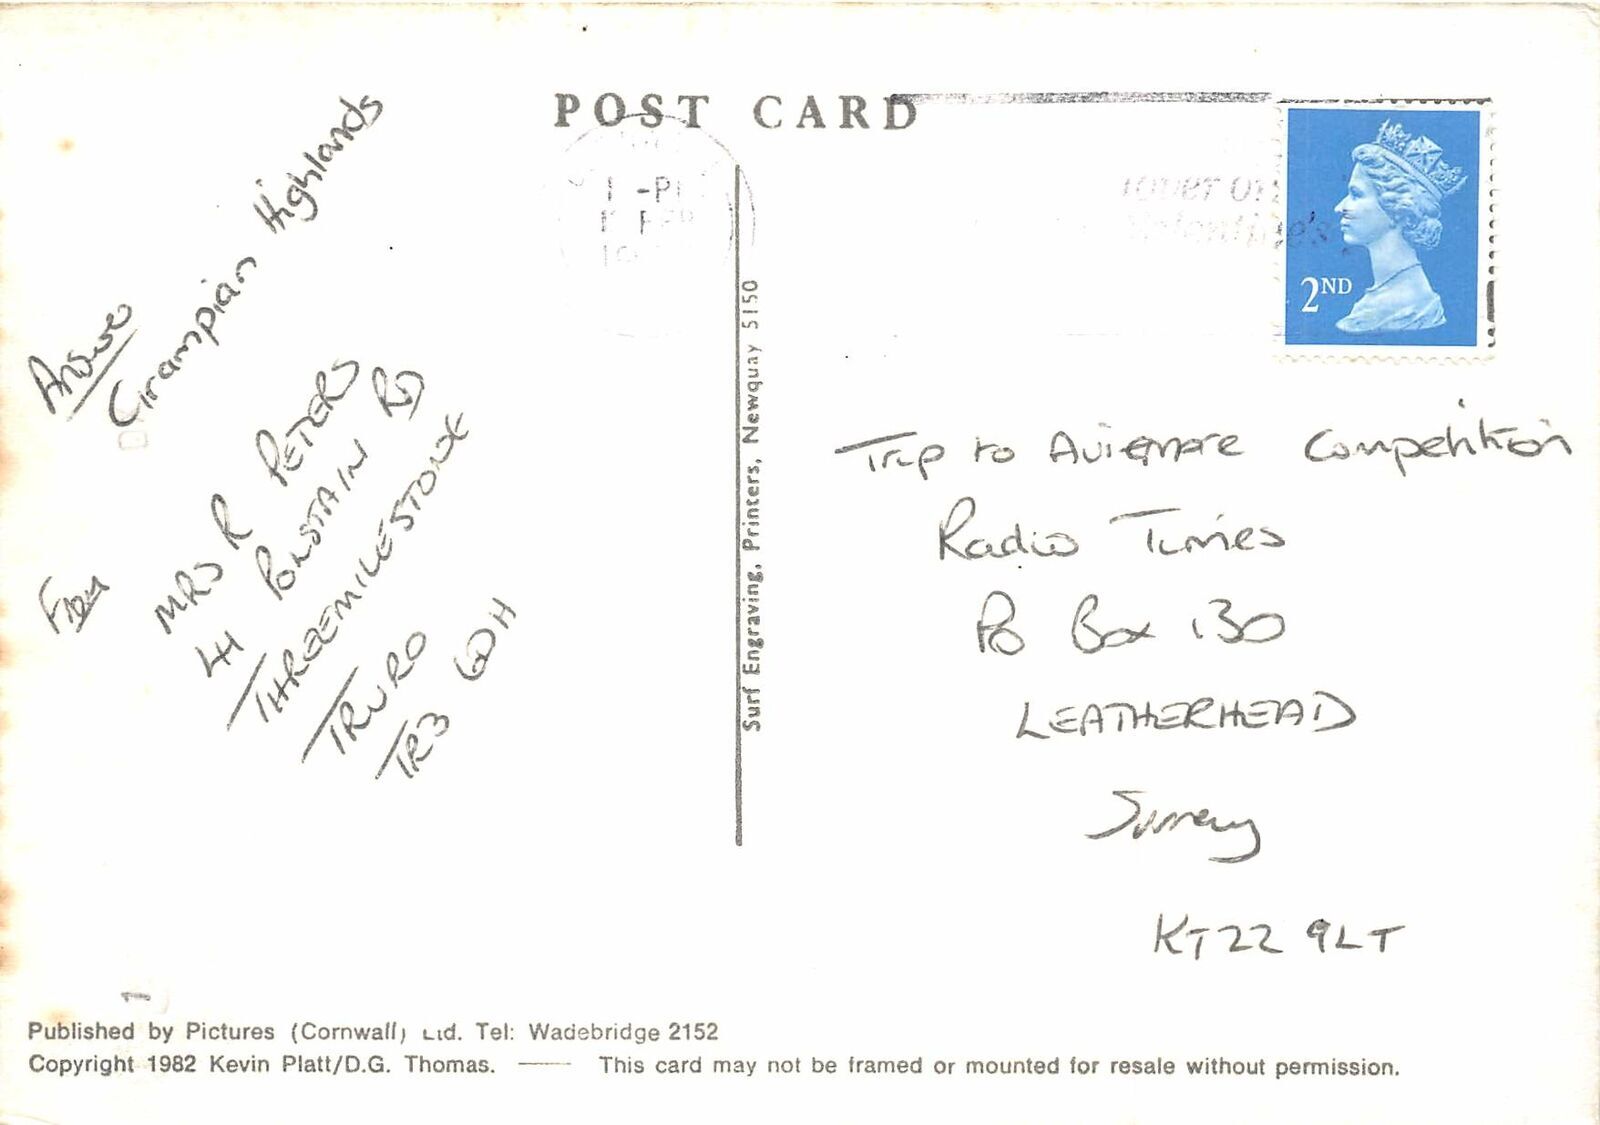 POST CARD
Answer
Grampian Highlands
From
MRS R PETERS
44 POLSTAIN RD
THREEMILESTONE
TRURO
TR3 6DH
1 -P
FEB
Valentine's
2ND
Trip to Aviemore Competition
Radio Times
PO Box 130
LEATHERHEAD
Surrey
KT22 9LT
Surf Engraving, Printers, Newquay 5150
Published by Pictures (Cornwall) Ltd. Tel: Wadebridge 2152
Copyright 1982 Kevin Platt/D.G. Thomas. —— This card may not be framed or mounted for resale without permission.